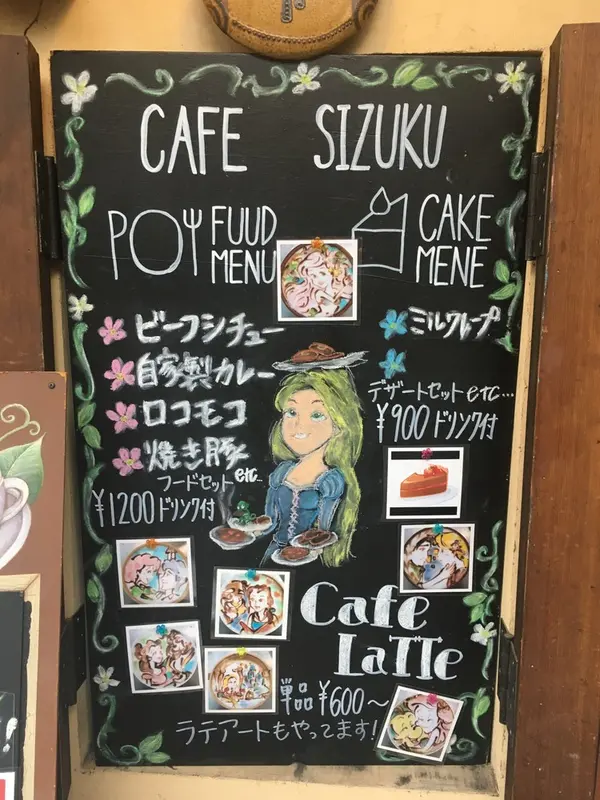 CAFE SIZUKU
FUUD
MENU
CAKE
MENE
ビーフシチュー
自家製カレー
ロコモコ
焼き豚
フードセット etc...
¥1200ドリンク付
ミルクレープ
デザートセット etc...
¥900 ドリンク付
Cafe
LaTTe
単品¥600～
ラテアートもやってます!